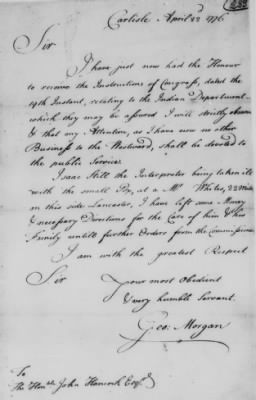 Carlisle April 22 1776
Sir
I have just now had the Honour
to receive the Instructions of Congress, dated the
19th Instant, relating to the Indian Department
which they may be assured I will strictly observe
& that my Attention, as I have now no other
Business to the Westward, shall be devoted to
the public Service.
Isaac Still the Interpreter being taken ill
with the small Pox, at a Mr Whites, 22 Miles
on this side Lancaster, I have left some Money
& necessary Directions for the Care of him & his
Family untill further Orders from the Commissioners
I am with the greatest Respect
Sir Your most Obedient
& very humble Servant.
Geo: Morgan
To
The Honble John Hancock Esqr